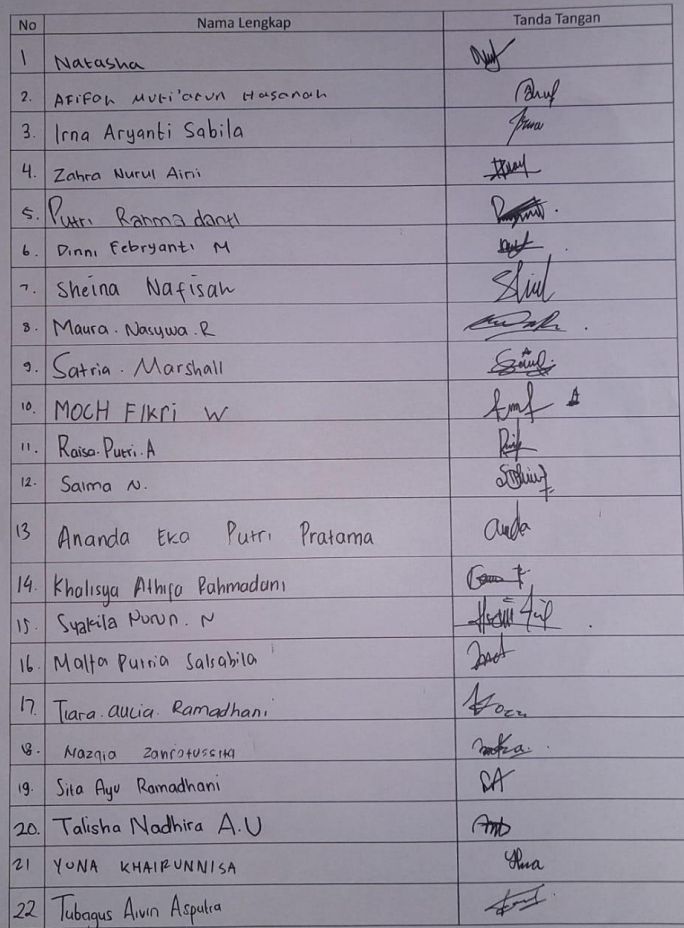 No Nama Lengkap Tanda Tangan
1 Natasha
2. Afifah Muti'atun Hasanah
3. Irna Aryanti Sabila
4. Zahra Nurul Aini
5. Putri Rahmadanti
6. Dinni Febryanti M
7. Sheina Nafisah
8. Maura. Nasywa. R
9. Satria. Marshall
10. MOCH FIKRI W
11. Raisa. Putri. A
12. Salma N.
13 Ananda Eka Putri Pratama
14. Khalisya Athifa Rahmadani
15. Syakila Nurun. N
16. Malfa Putria Salsabila
17. Tiara. aulia. Ramadhani
18. Nazqia
19. Sita Ayu Ramadhani
20. Talisha Nadhira A.U
21 YUNA KHAIRUNNISA
22 Tubagus Aivin Asputra